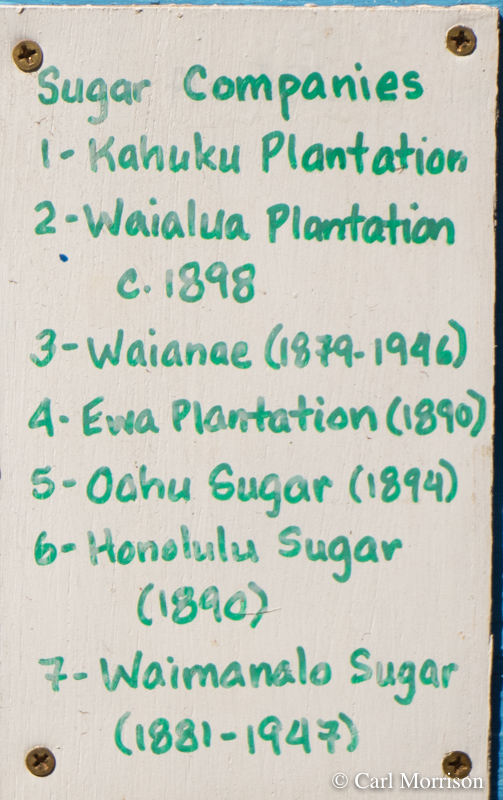 Sugar Companies
1- Kahuku Plantation
2- Waialua Plantation
c. 1898
3- Waianae (1879-1946)
4- Ewa Plantation (1890)
5- Oahu Sugar (1894)
6- Honolulu Sugar
(1890)
7- Waimanalo Sugar
(1881-1947)
© Carl Morrison